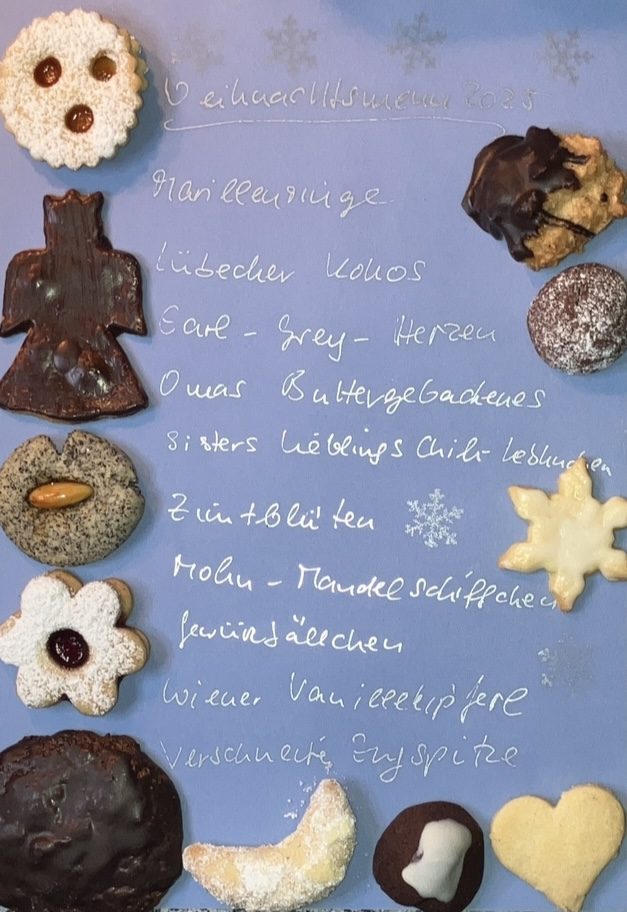 Weihnachtsmann 2025
Marillenringe
Lübecher Kokos
Earl - Grey - Herzen
Omas Buttergebackenes
Sisters Lieblings Chili- Lebkuchen
Zimtblüten
Mohn - Mandelschiffchen
Gewürzbällchen
Wiener Vanillekipferl
Verschneite Zugspitze